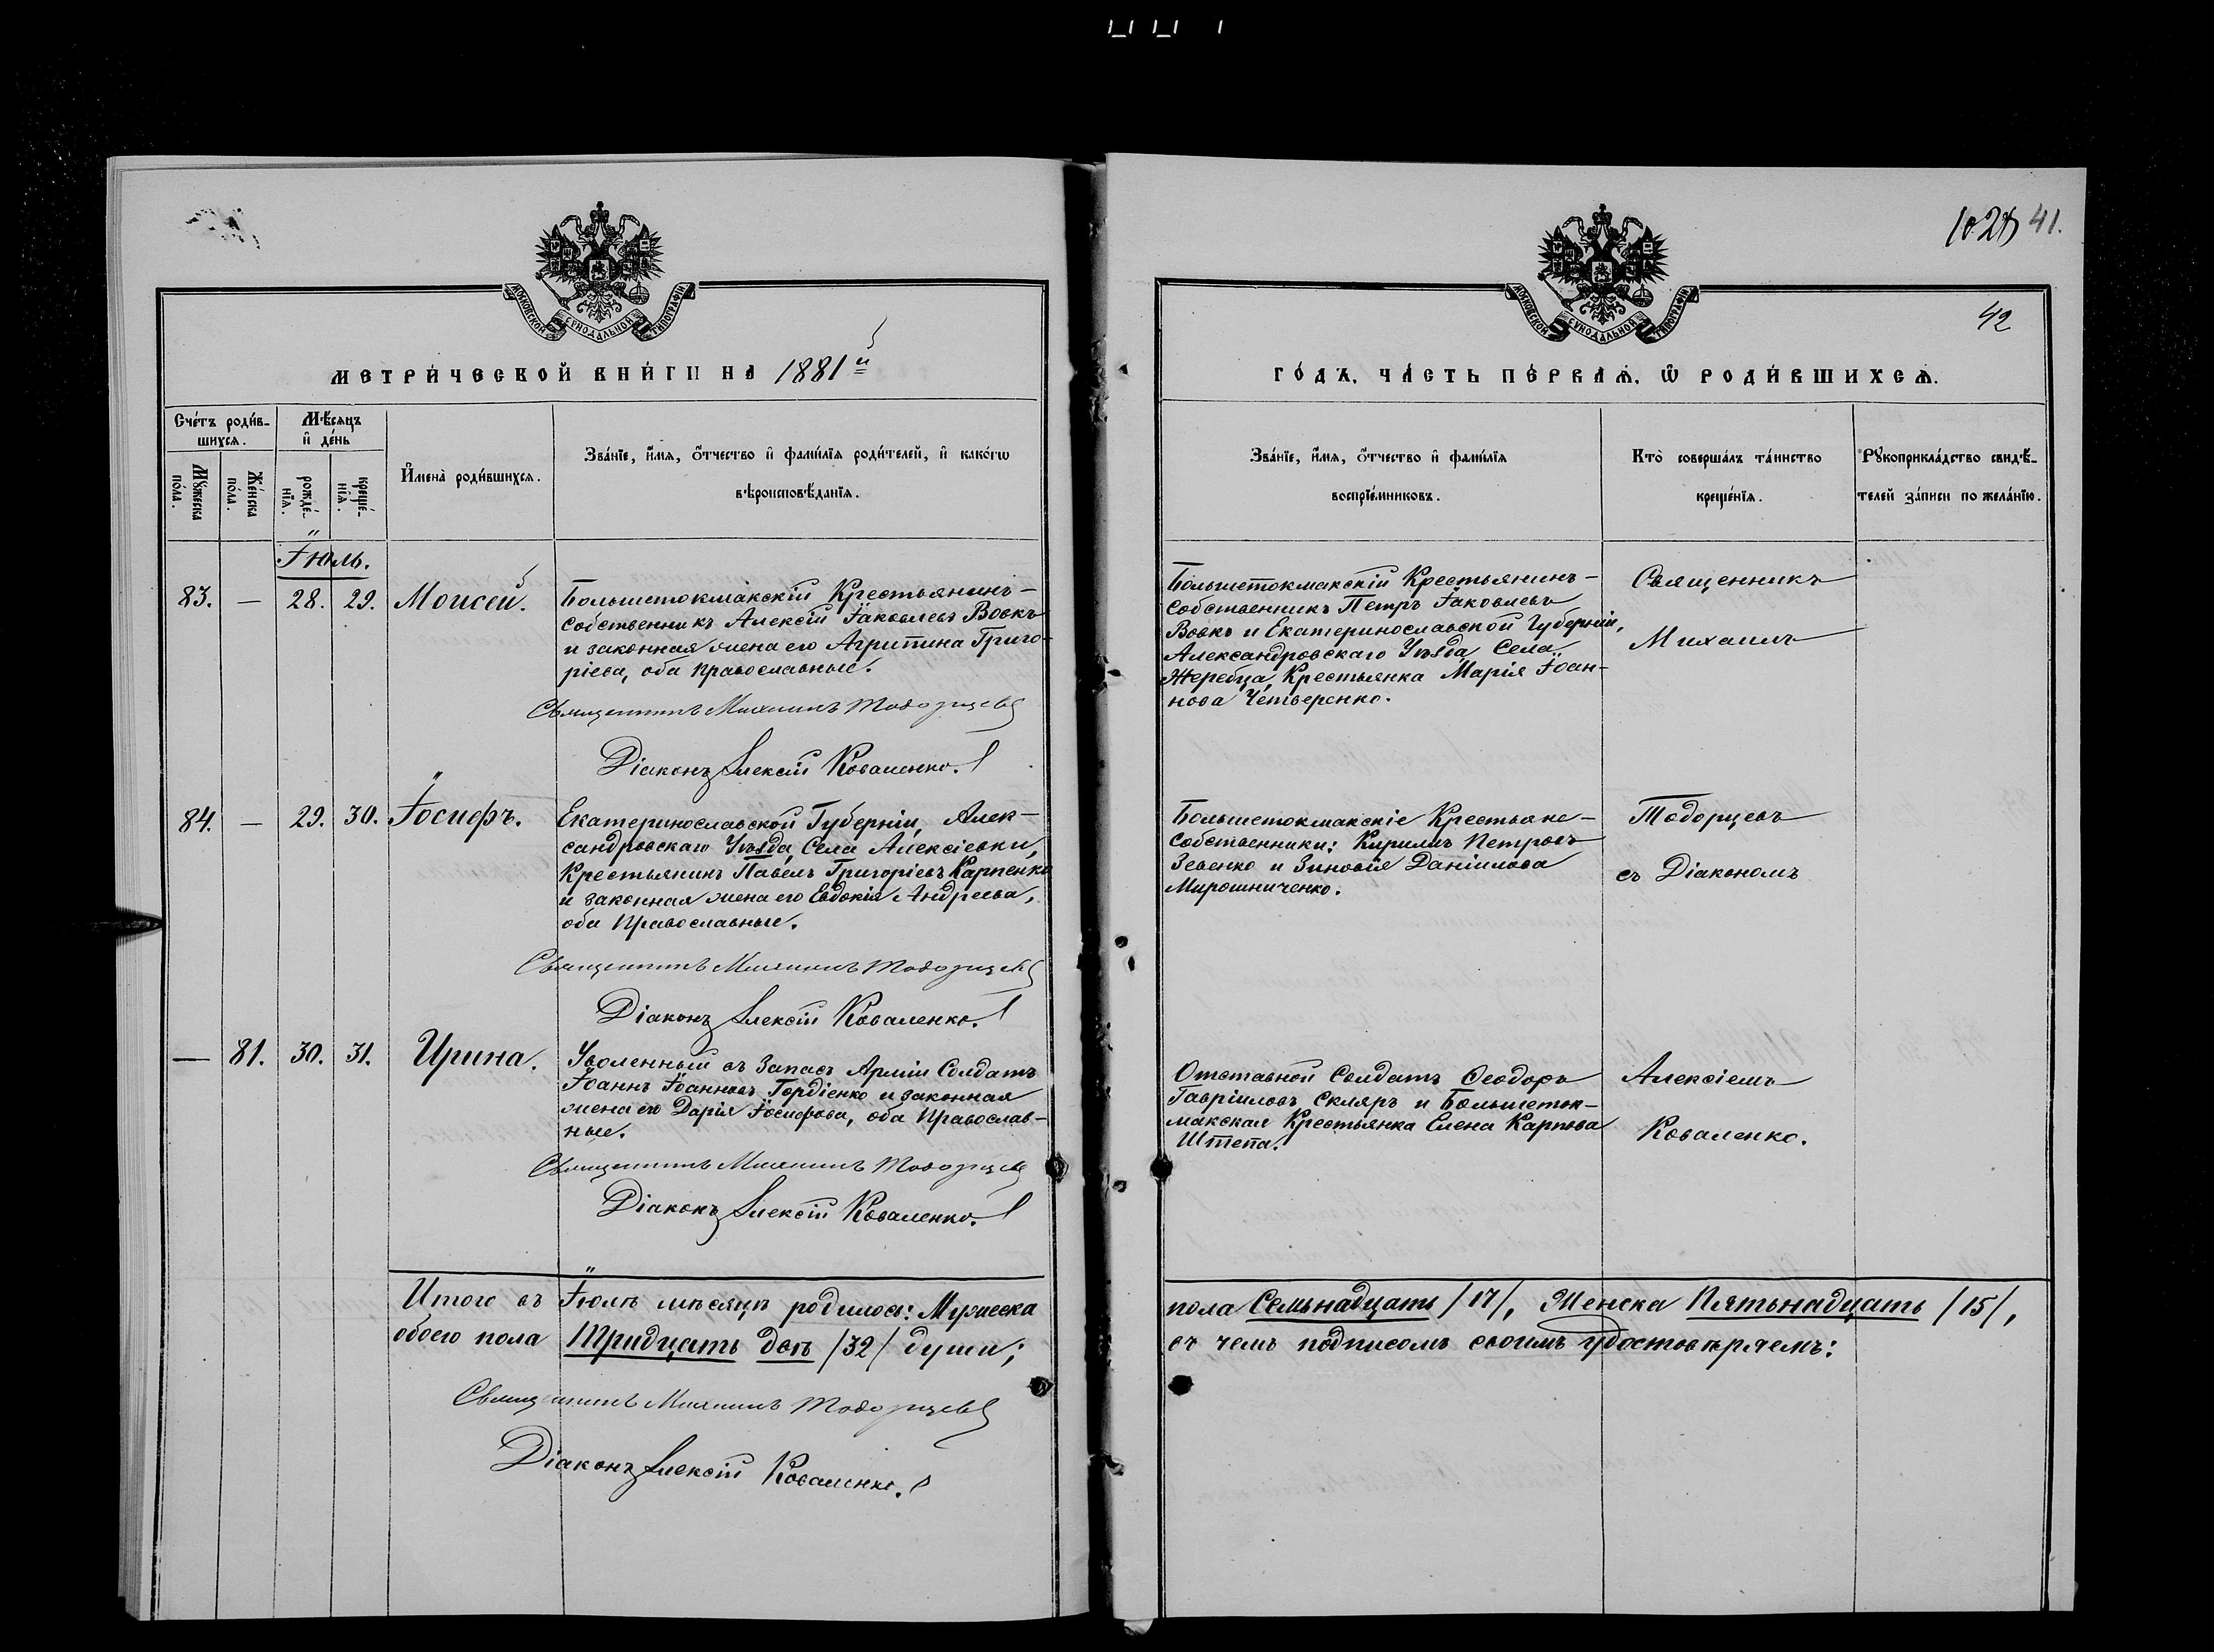 МОСКОВСКОЙ СѴНОДАЛЬНОЙ ТИПОГРАФІИ
МЕТРИ́ЧЕСКОЙ КНИ́ГИ НА 1881й
Сче́тъ роди́в-
шихся.
Мѣ́сяцъ
и де́нь
Му́жеска
по́ла.
Же́нска
по́ла.
рожде́-
нїя.
креще́-
нїя.
Имена̀ роди́вшихся.
Зва́нїе, и́мя, о́тчество и фами́лїя роди́телей, и како́гѡ
вѣроисповѣ́данїя.
Іюль.
83. — 28. 29. Моисей.
Большетокмакскій Крестьянинъ-
собственникъ Алексій Іаковлевъ Вовкъ
и законная жена его Агрипина Григо-
ріева, оба православные.
Священникъ Михаилъ Тодорцевъ
Діаконъ Алексій Коваленко.
84. — 29. 30. Іосифъ.
Екатеринославской Губерніи, Алек-
сандровскаго Уѣзда, Села Алексіевки,
Крестьянинъ Павелъ Григоріевъ Карпенко
и законная жена его Евдокія Андреева,
оба Православные.
Священникъ Михаилъ Тодорцевъ
Діаконъ Алексій Коваленко.
— 81. 30. 31. Ирина.
Уволенный въ Запасъ Арміи Солдатъ
Іоаннъ Іоанновъ Гордіенко и законная
жена его Дарія Іосифова, оба Православ-
ные.
Священникъ Михаилъ Тодорцевъ
Діаконъ Алексій Коваленко.
Итого въ Іюлѣ мѣсяцѣ родилось: Мужеска
обоего пола Тридцать двѣ /32/ души;
Священникъ Михаилъ Тодорцевъ
Діаконъ Алексій Коваленко.
41.
42
МОСКОВСКОЙ СѴНОДАЛЬНОЙ ТИПОГРАФІИ
ГО́ДЪ, ЧА́СТЬ ПЕ́РВАЯ, Ѿ РОДИ́ВШИХСЯ.
Зва́нїе, и́мя, о́тчество и фами́лїя
воспрїе́мниковъ.
Кто̀ соверша́лъ та́инство
креще́нїя.
Рꙋкоприкла́дство свидѣ́-
телей за́писи по жела́нїю.
Большетокмакскій Крестьянинъ-
Собственникъ Петръ Іаковлевъ
Вовкъ и Екатеринославской Губерніи,
Александровскаго Уѣзда Села
Жеребца, Крестьянка Марія Іоан-
нова Четверенко.
Священникъ
Михаилъ
Большетокмакскіе Крестьяне-
Собственники: Кирилъ Петровъ
Зевенко и Зиновія Даніилова
Мирошниченко.
Тодорцевъ
съ Діакономъ
Отставной Солдатъ Ѳеодоръ
Гавріиловъ Скляръ и Большеток-
макская Крестьянка Елена Карпова
Штепа.
Алексіемъ
Коваленко.
пола Семьнадцать /17/, Женска Пятьнадцать /15/,
въ чемъ подписомъ своимъ удостовѣряемъ: